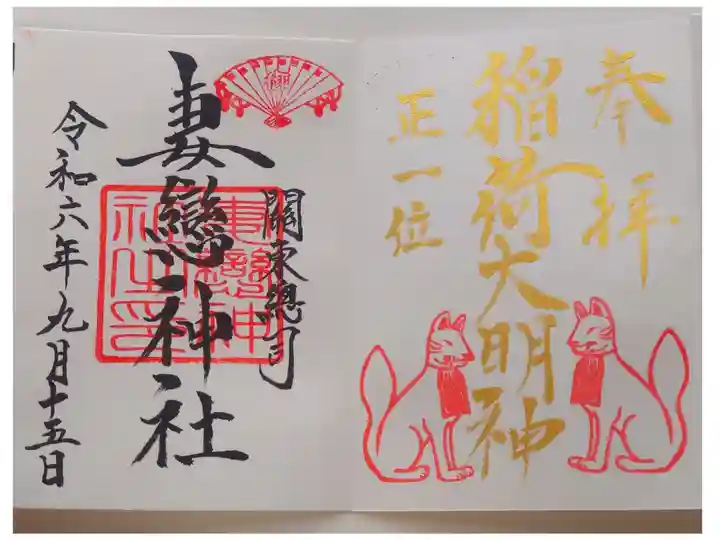 奉拝
稲荷大明神
正一位
關東總司
妻戀神社
令和六年九月十五日
妻戀神
社之印